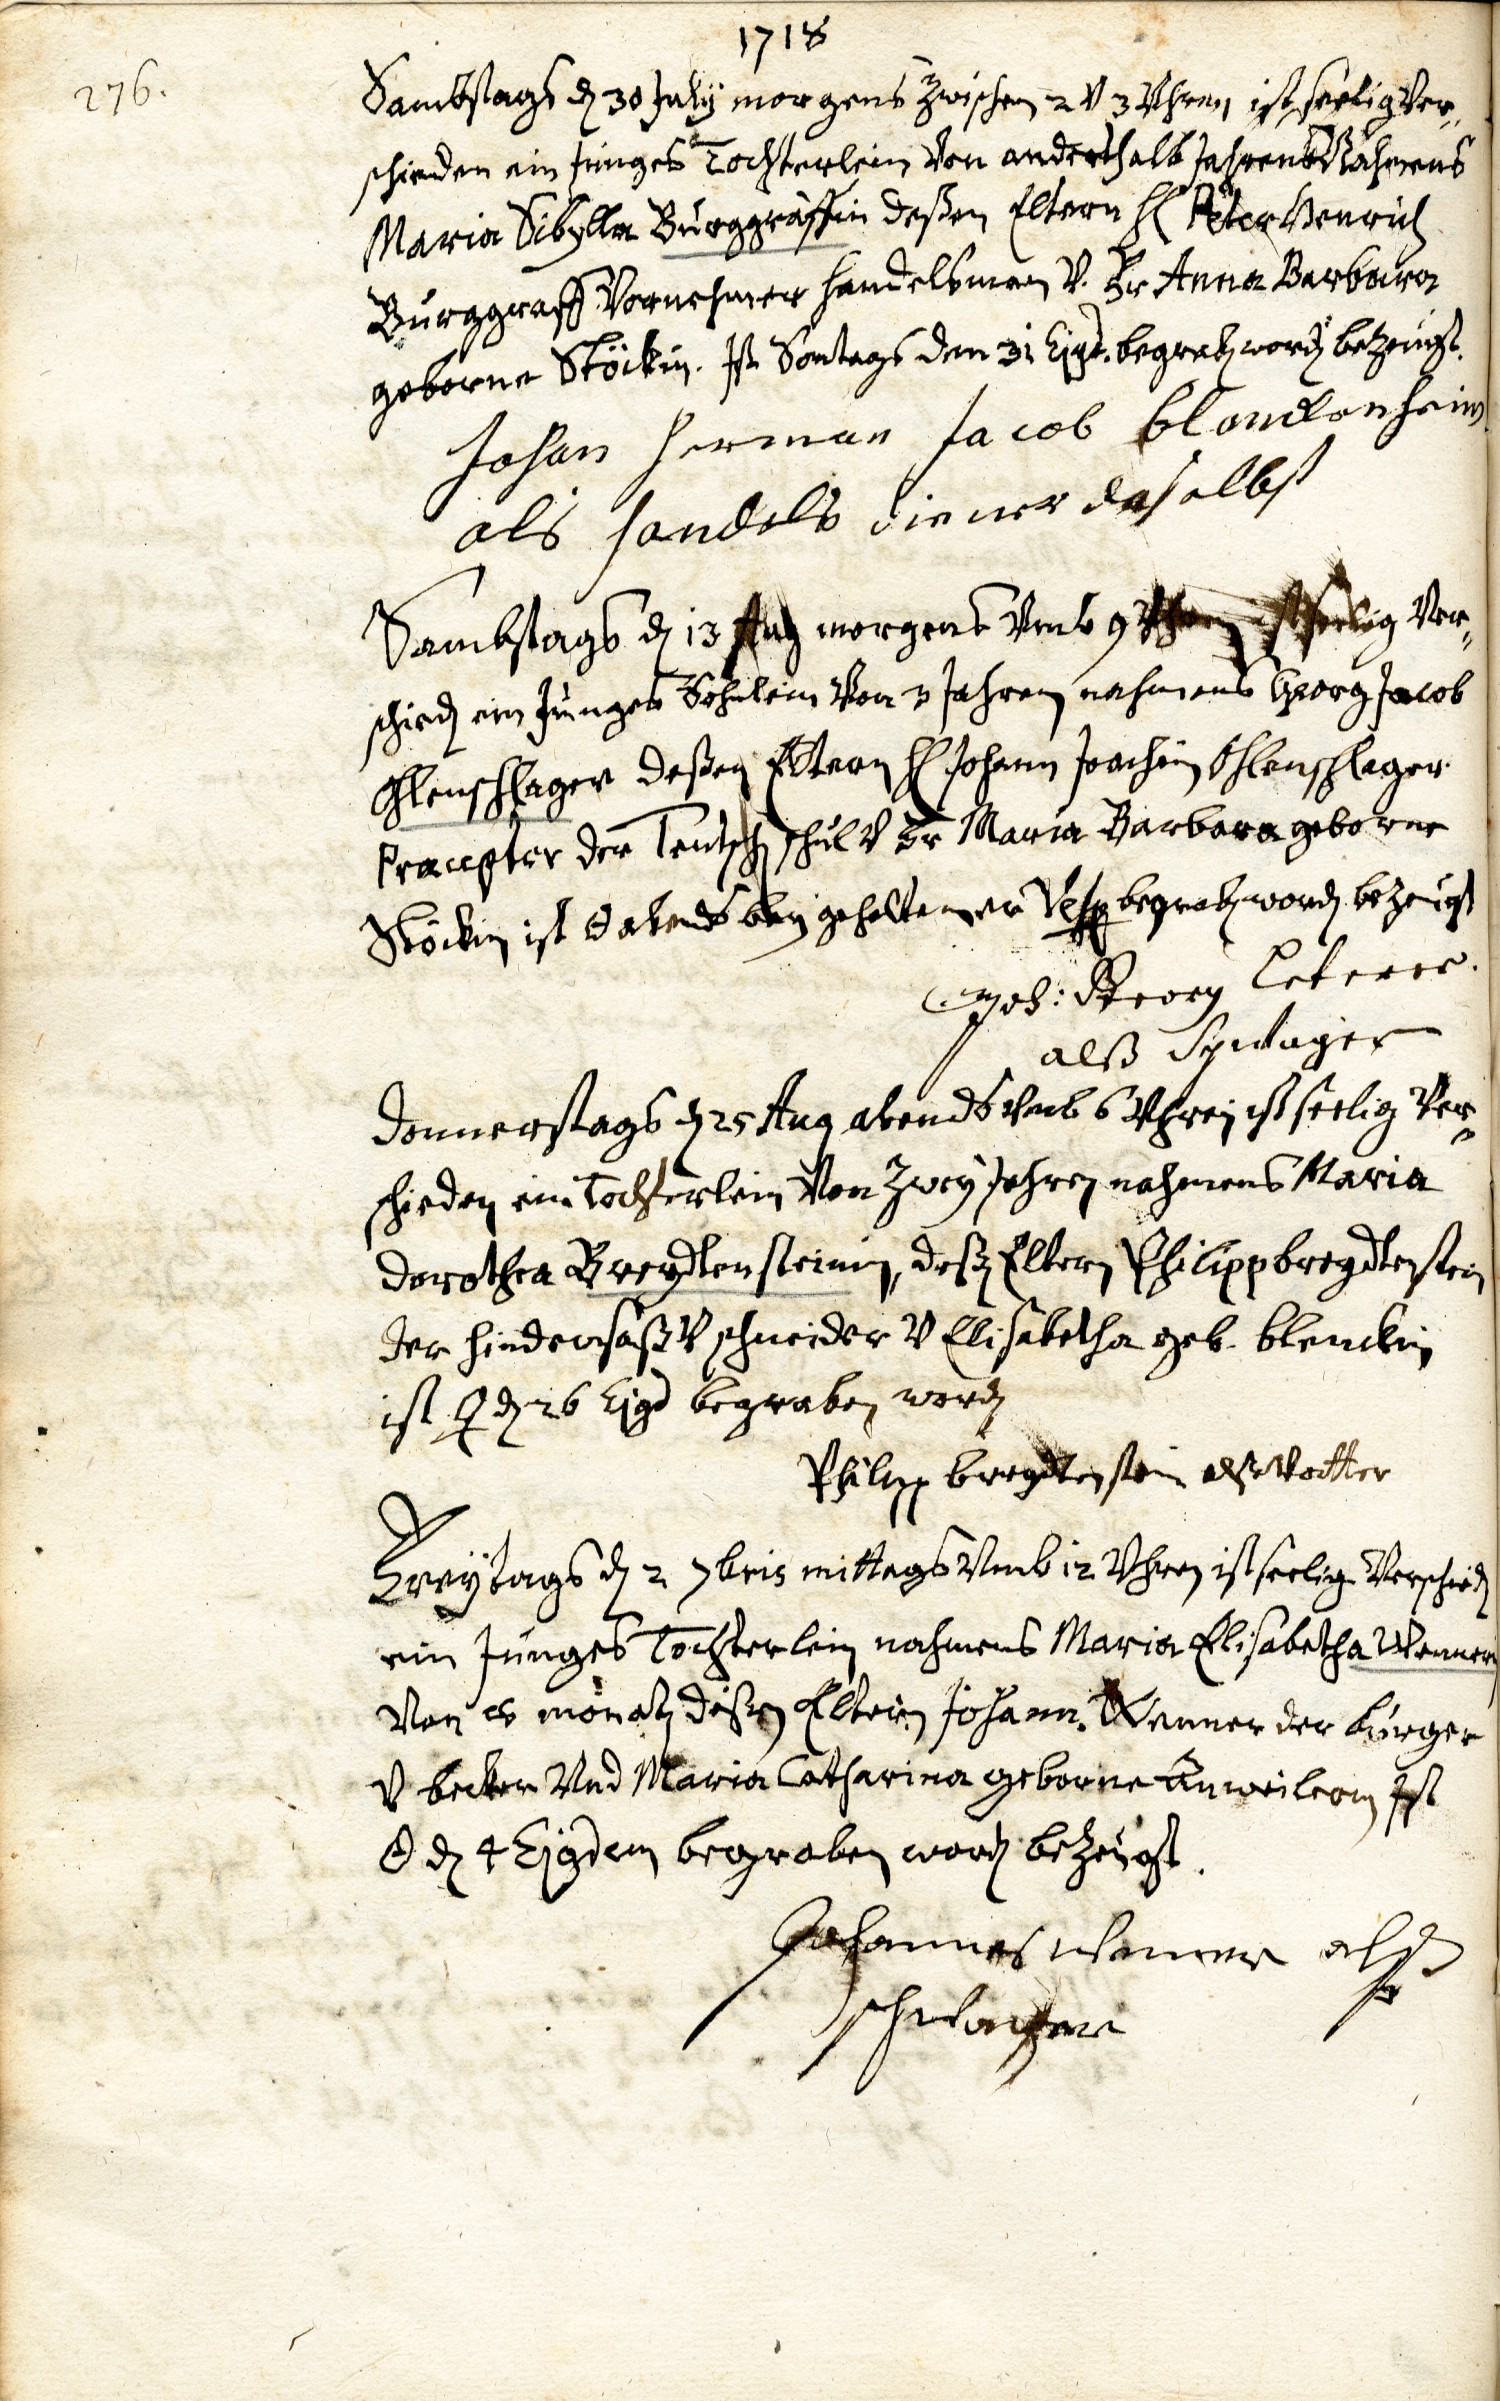 1718
276.
Sambstags d 30 July morgens zwischen 2 V 3 Uhren ist seelig Ver-
schieden ein Junges Tochterlein Von anderthalb Jahren Nahmens
Maria Sibylla Burggräffin deßen Eltern H Peter Henrich
Burggraff Vornehmer handelsman V. Fr Anna Barbara
geborne Stöckin. Ist Sontags den 31 Ejgd. begrab word bezeugt.
Johan Herman Jacob blanckenheim
als handels diener daselbst
Sambstags d 13 Aug morgens Vmb 9 Uhren ist seelig Ver-
schied ein Junges Söhnlein Von 3 Jahren nahmens Georg Jacob
Ohlenschlager deßen Eltern H Johann Joachim Ohlenschlager
Præceptor der Teutsch schul V Fr Maria Barbara geborne
Stöckin ist ☉ abends bey gehaltener Vesp begrab word bezeugt
Joh: Georg
alß Schwager
Donnerstags d 25 Aug abends Vmb 6 Uhren ist seelig Ver-
schieden ein Tochterlein Von Zwey Jahren nahmens Maria
Dorothea Breydtensteinin, deß Eltern Philipp breydtenstein
der hindersaß V schneider V Elisabetha geb. blenckin
ist ♀ d 26 Ejgd begraben word
Philipp breydtenstein alß Vatter
Freytags d 2 7bris mittags Vmb 12 Uhren ist seelig Verschied
ein Junges Tochterlein nahmens Maria Elisabetha Wennerin
Von monath deßen Eltern Johann Wenner der burger
V becker Und Maria Catharina geborne Anweilerin Ist
☉ d 4 Ejgdem begraben word bezeugt.
Johannes Wenner alß
schwager